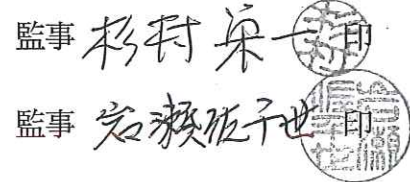 監事 杉村 栄一 印
監事 岩瀬佐千世 印